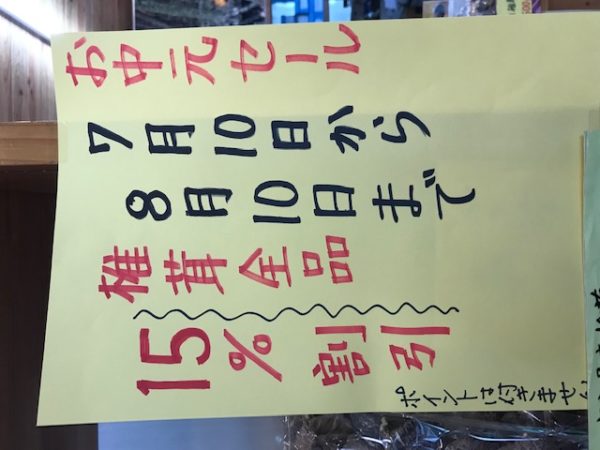 お中元セール
7月10日から
8月10日まで
椎茸全品
15%割引
ポイントは付きません